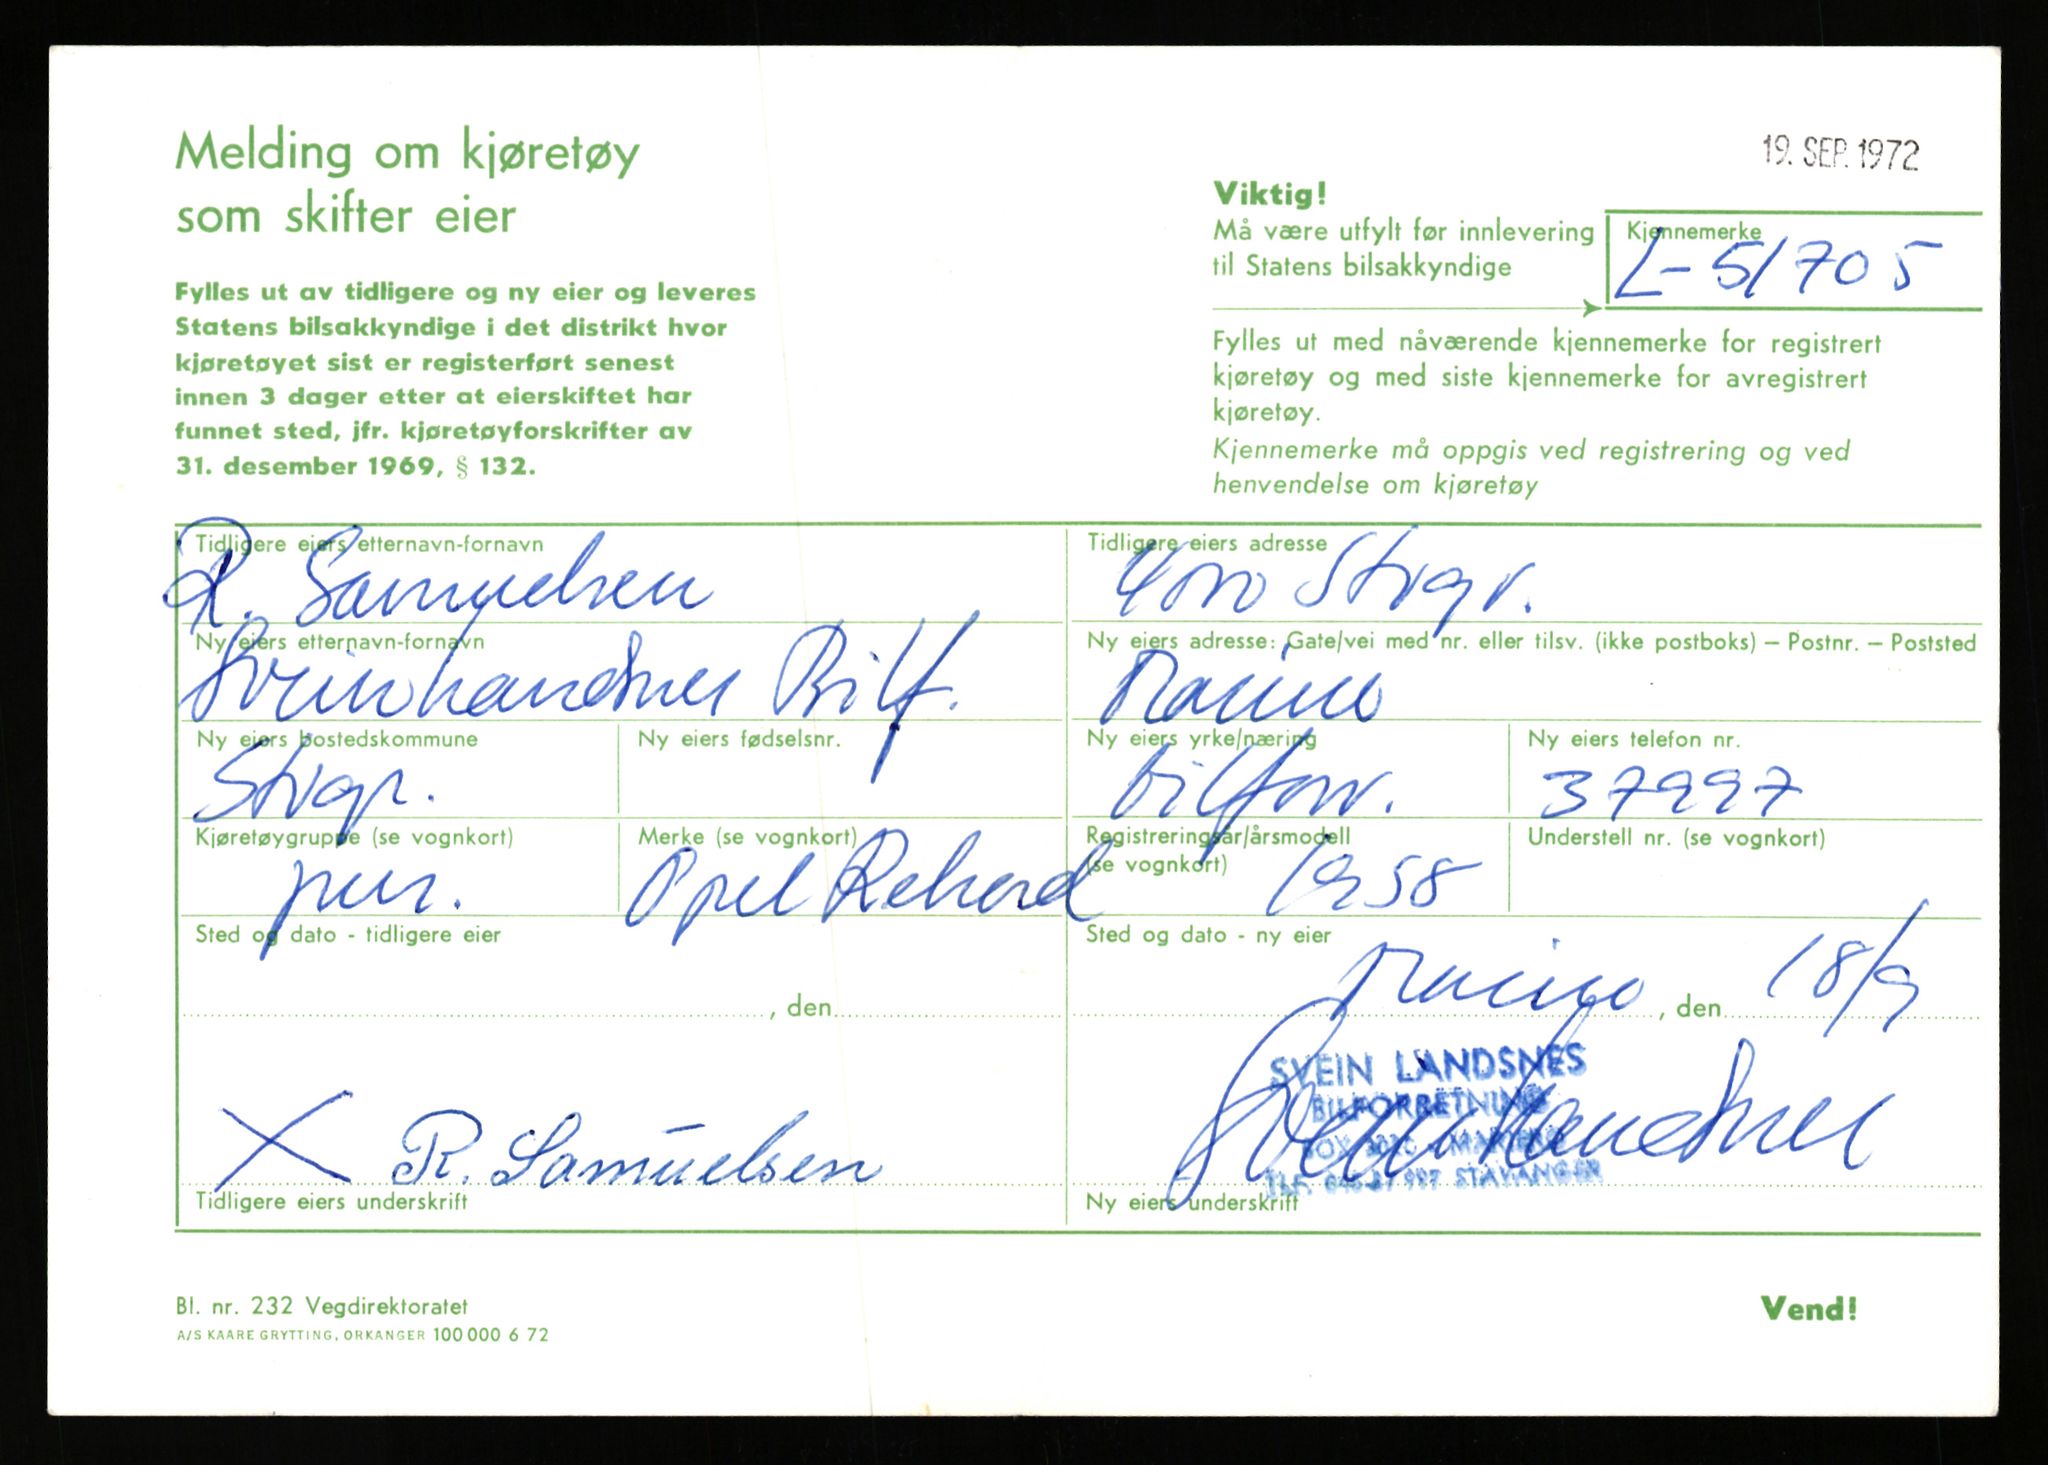 Melding om kjøretøy
som skifter eier
Fylles ut av tidligere og ny eier og leveres
Statens bilsakkyndige i det distrikt hvor
kjøretøyet sist er registerført senest
innen 3 dager etter at eierskiftet har
funnet sted, jfr. kjøretøyforskrifter av
31. desember 1969, § 132.
19. SEP. 1972
Viktig!
Må være utfylt før innlevering
til Statens bilsakkyndige
Kjennemerke
L-51705
Fylles ut med nåværende kjennemerke for registrert
kjøretøy og med siste kjennemerke for avregistrert
kjøretøy.
Kjennemerke må oppgis ved registrering og ved
henvendelse om kjøretøy
Tidligere eiers etternavn-fornavn
R. Samuelsen
Tidligere eiers adresse
Stvgr.
Ny eiers etternavn-fornavn
Svein Landsnes Bilf.
Ny eiers adresse: Gate/vei med nr. eller tilsv. (ikke postboks) — Postnr. — Poststed
Mariero
Ny eiers bostedskommune
Stvgr.
Ny eiers fødselsnr.
Ny eiers yrke/næring
bilforr.
Ny eiers telefon nr.
37997
Kjøretøygruppe (se vognkort)
per.
Merke (se vognkort)
Opel Rekord
Registreringsår/årsmodell
(se vognkort)
1958
Understell nr. (se vognkort)
Sted og dato - tidligere eier
, den
Sted og dato - ny eier
Mariero, den 18/9
X R. Samuelsen
Tidligere eiers underskrift
SVEIN LANDSNES
BILFORRETNING
BOX - MARIERO
TLF. 045-37 997 STAVANGER
Svein Landsnes
Ny eiers underskrift
Bl. nr. 232 Vegdirektoratet
A/S KAARE GRYTTING, ORKANGER 100 000 6 72
Vend!